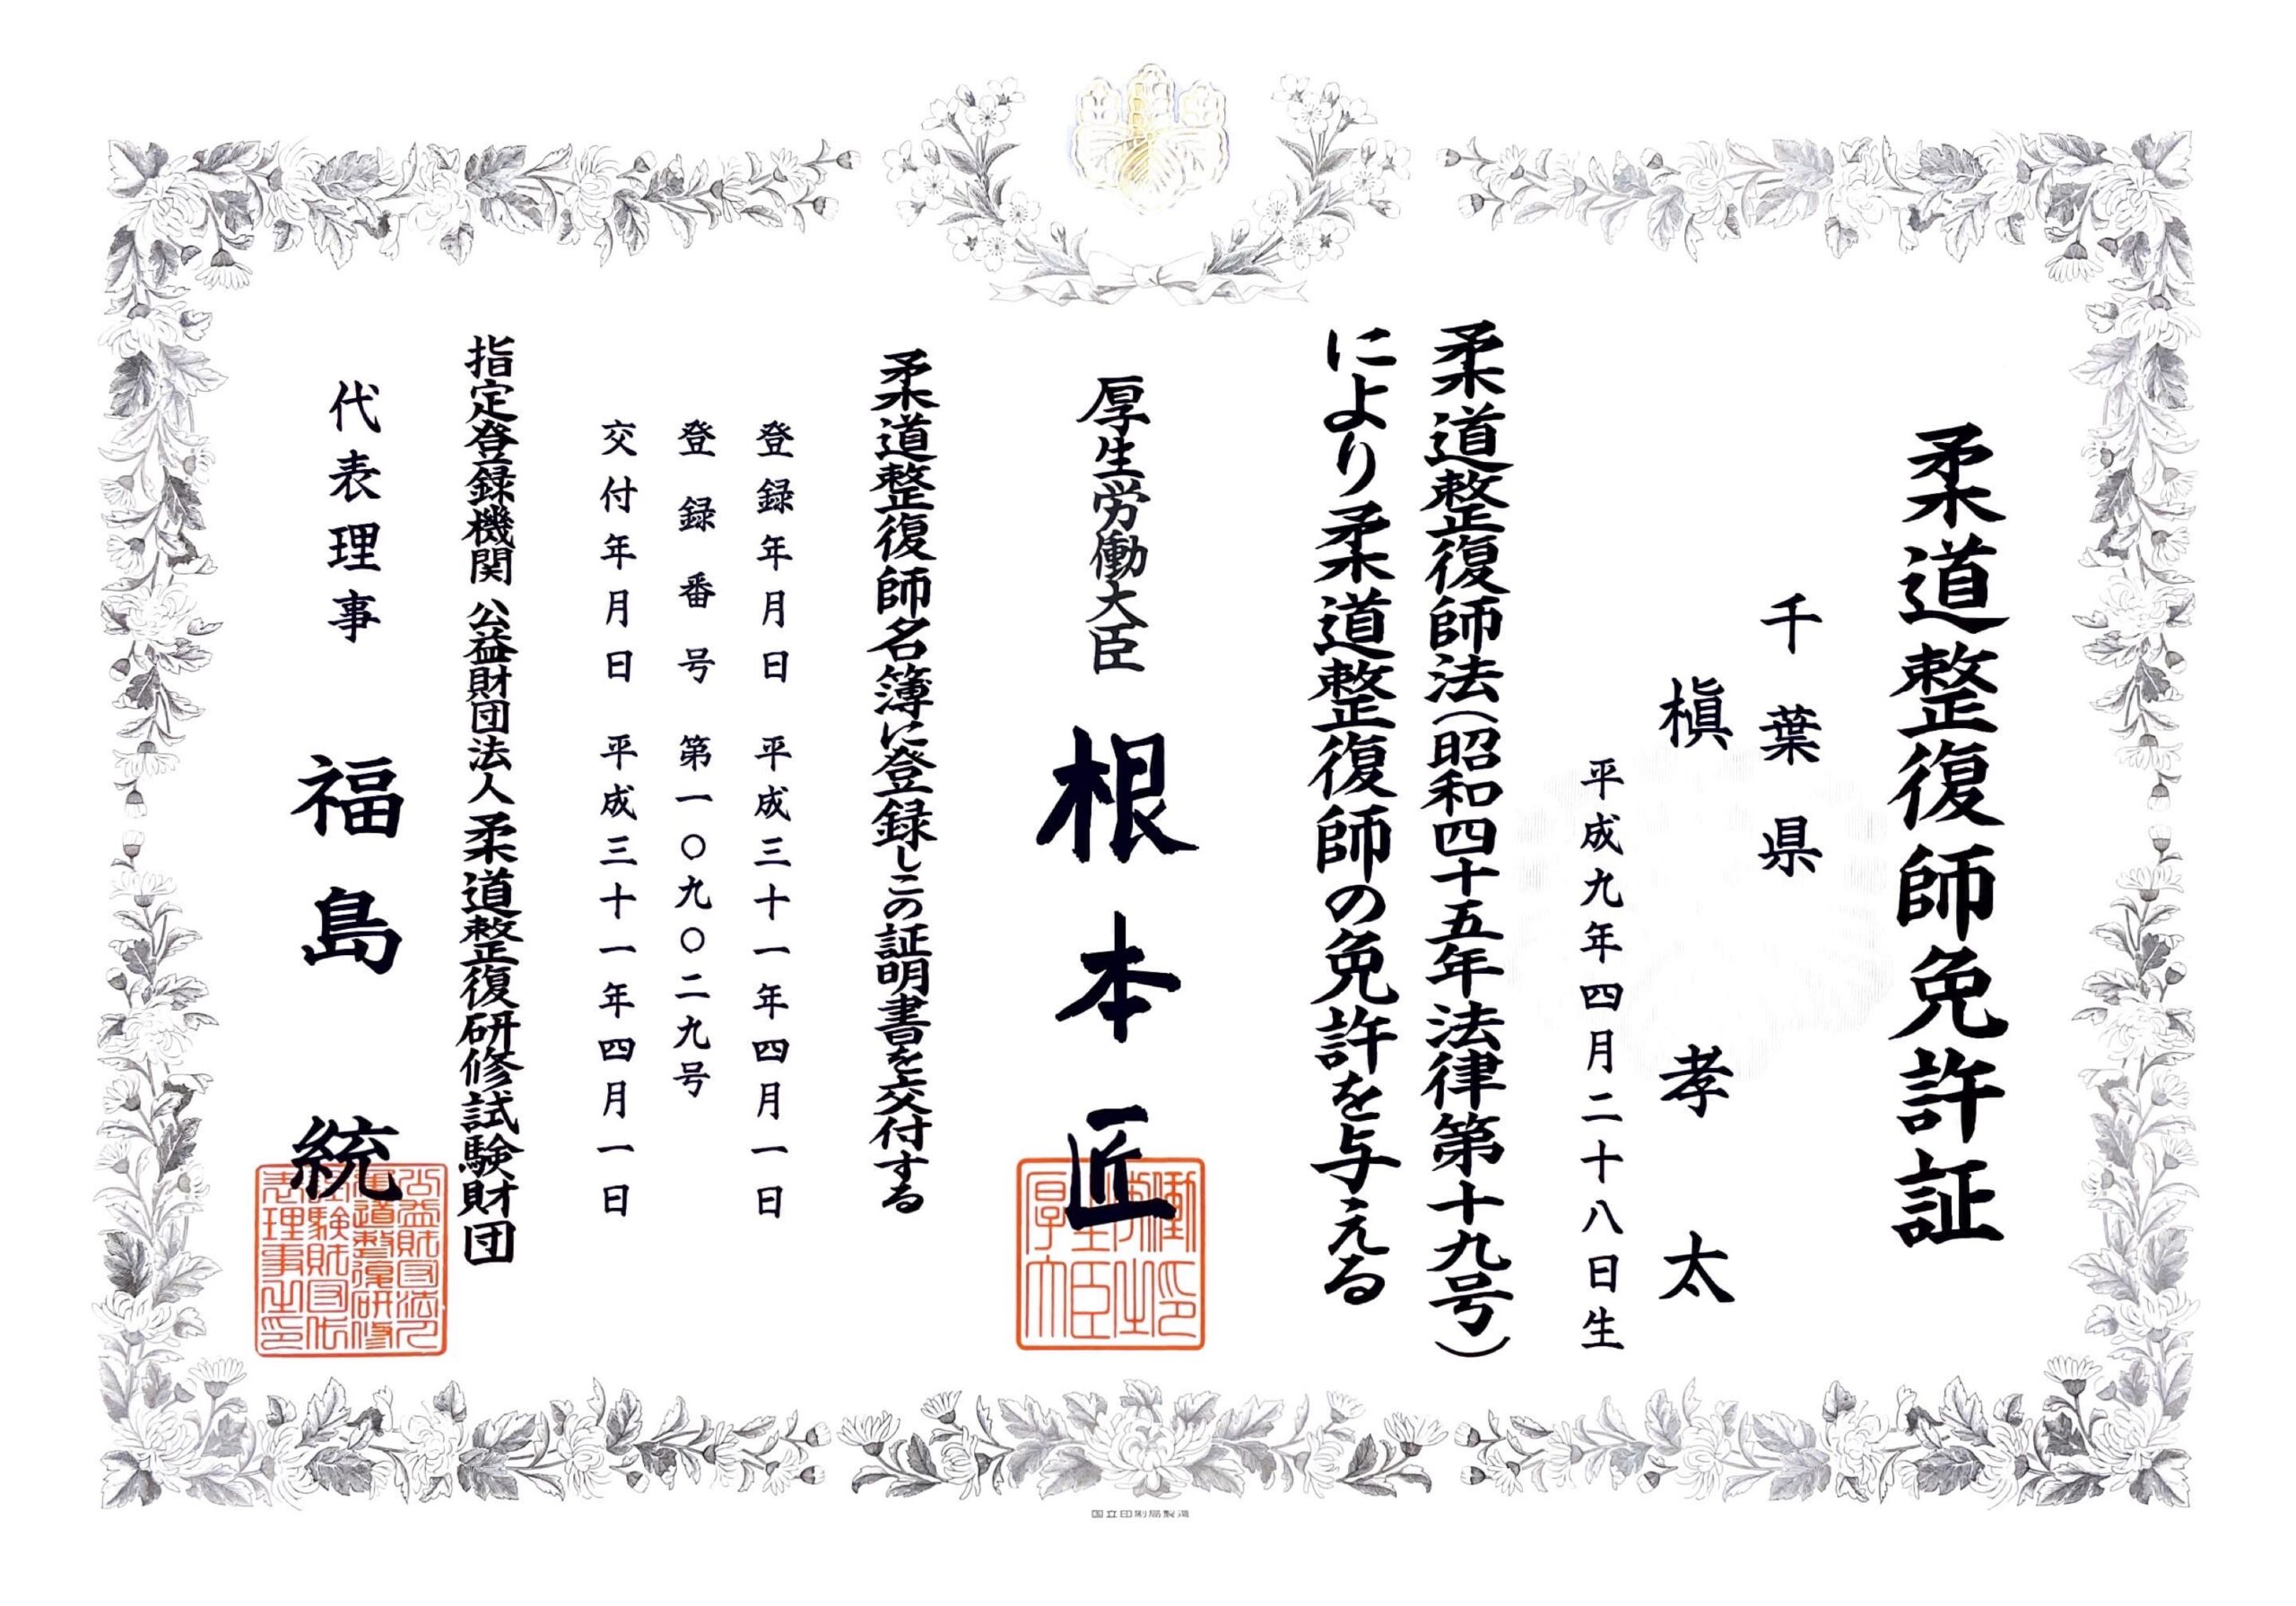 柔道整復師免許証
千葉県
槇孝太
平成九年四月二十八日生
柔道整復師法(昭和四十五年法律第十九号)
により柔道整復師の免許を与える
厚生労働大臣 根本匠
厚生労働大臣之印
柔道整復師名簿に登録しこの証明書を交付する
登録年月日 平成三十一年四月一日
登録番号 第一〇九〇二九号
交付年月日 平成三十一年四月一日
指定登録機関 公益財団法人柔道整復研修試験財団
代表理事 福島統
公益財団法人柔道整復研修試験財団代表理事之印
国立印刷局製造